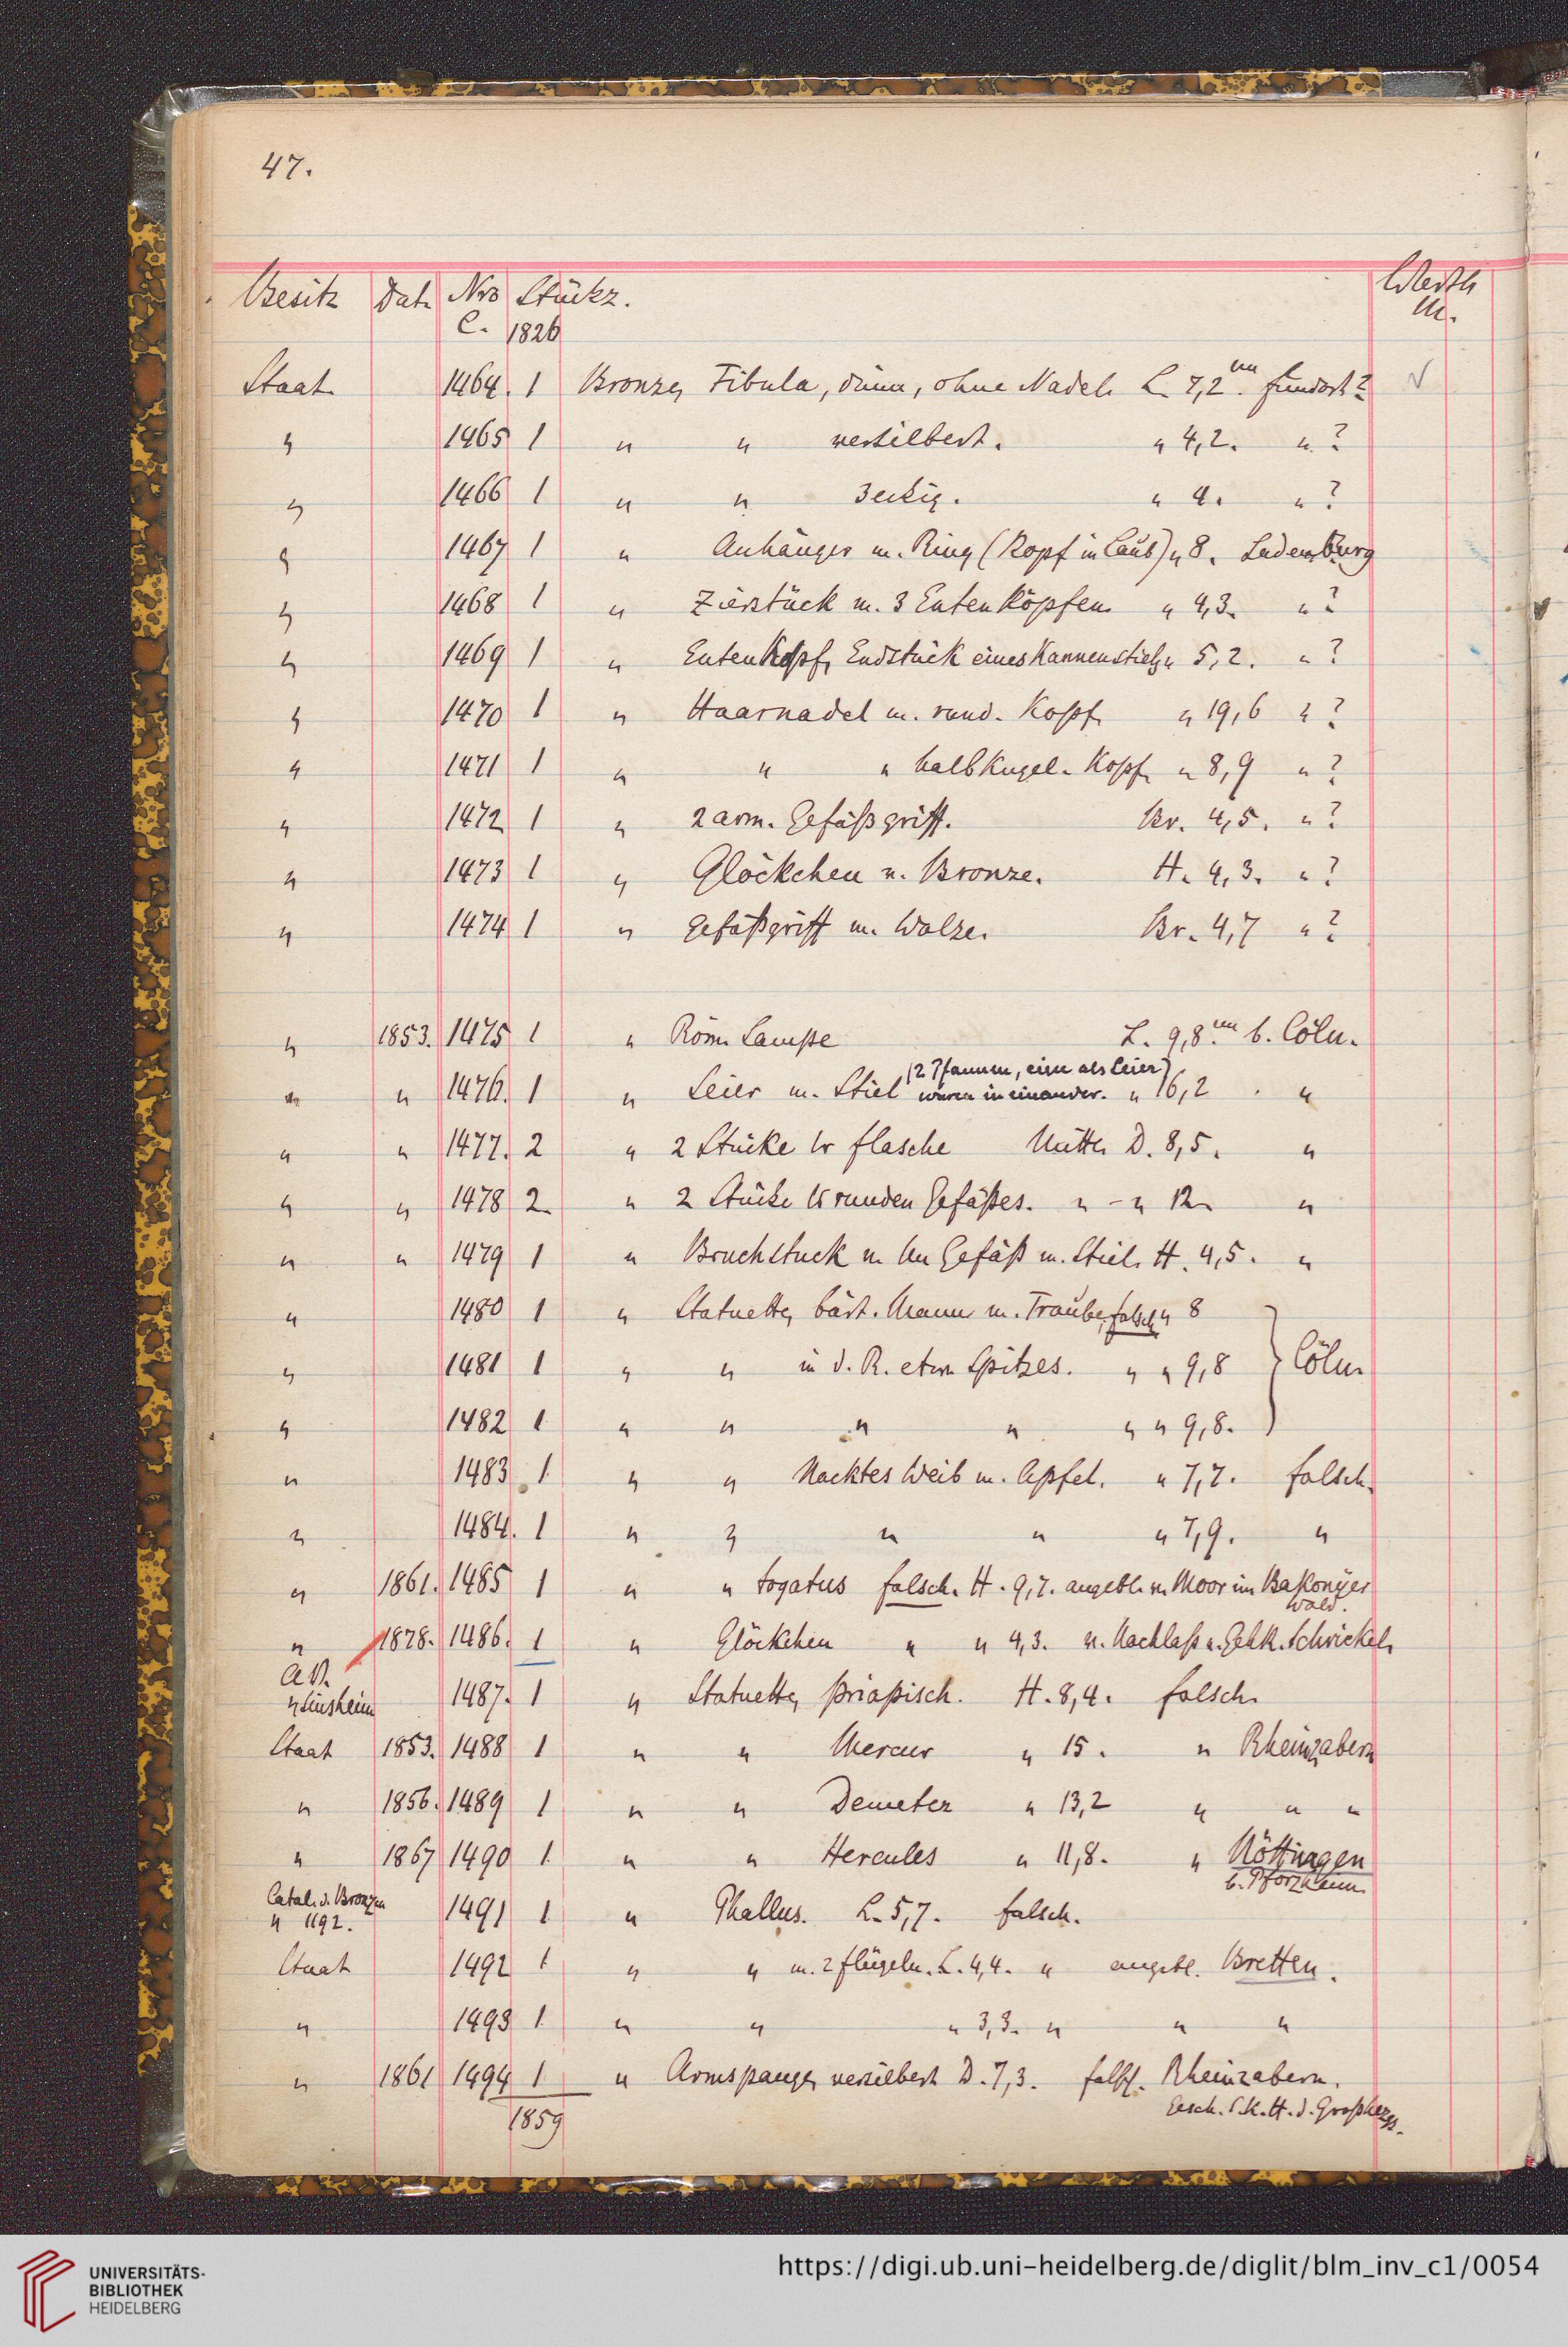 47.
Besitz Dat. Nro Stückz. Werth
C. 1826 M.
Staat 1464. 1 Bronze, Fibula, dünn, ohne Nadel. L. 7,2 cm. Fundort?
" 1465 1 " " versilbert. " 4,2. " ?
" 1466 1 " " " 4. " ?
" 1467 1 " Anhänger m. Ring (Kopf in Laub) " 8. Ladenburg
" 1468 1 " Zierstück m. 3 Entenköpfen " 4,3. " ?
" 1469 1 " Entenkopf, Endstück eines Kannenstiels " 5,2. " ?
" 1470 1 " Haarnadel m. rund. Kopf. " 19,6 " ?
" 1471 1 " " " halbkugel. Kopf. " 8,9 " ?
" 1472 1 " 2 arm. Gefäßgriff. Br. 4,5. " ?
" 1473 1 " Glöckchen v. Bronze. H. 4,3. " ?
" 1474 1 " Gefäßgriff m. Walze. Br. 4,7 " ?
" 1853. 1475 1 " Röm. Lampe L. 9,8 cm b. Cöln.
(2 Pfannen, eine als Leier)
" " 1476. 1 " Leier m. Stiel waren in einander. " 16,2 . "
" " 1477. 2 " 2 Stücke Flasche Mittl. D. 8,5. "
" " 1478 2. " 2 Stücke runden Gefäßes. " - " 12. "
" " 1479 1 " Bruchstück v. Gefäß m. Stiel. H. 4,5. "
" 1480 1 " Statuette, bärt. Mann m. Traube, falsch " 8
" 1481 1 " " in d. R. etw. Spitzes. " " 9,8 } Cöln.
" 1482 1 " " " " " " 9,8.
" 1483 1. " " Nacktes Weib m. Apfel. " 7,7. falsch.
" 1484. 1 " " " " " 7,9. "
" 1861. 1485 1 " " togatus falsch. H. 9,7. angebl. v. Moor im Bakonyer
Wald.
" 1878. 1486. 1 " Glöckchen " " 4,3. v. Nachlaß v. Gehk. Schrickel.
A.V.
" Sinsheim 1487. 1 " Statuette, priapisch. H. 8,4. falsch.
Staat 1853. 1488 1 " " Mercur " 15. " Rheinzabern
" 1856. 1489 1 " " Demeter " 13,2 " " "
" 1867 1490 1. " " Hercules " 11,8. " Nöttingen
b. Pforzheim.
Catal. d. Bronzen
" 1192. 1491 1 " Phallus. L. 5,7. falsch.
Staat 1492 1 " " m. 2 Flügeln. L. 4,4. " angebl. Bretten.
" 1493 1. " " " 3,3. " " "
" 1861 1494 1 " Armspange, versilbert D. 7,3. falsch. Rheinzabern.
1859 Gesch. S. K. H. d. Großherzgs.
UNIVERSITÄTS-
BIBLIOTHEK
HEIDELBERG
https://digi.ub.uni-heidelberg.de/diglit/blm_inv_c1/0054